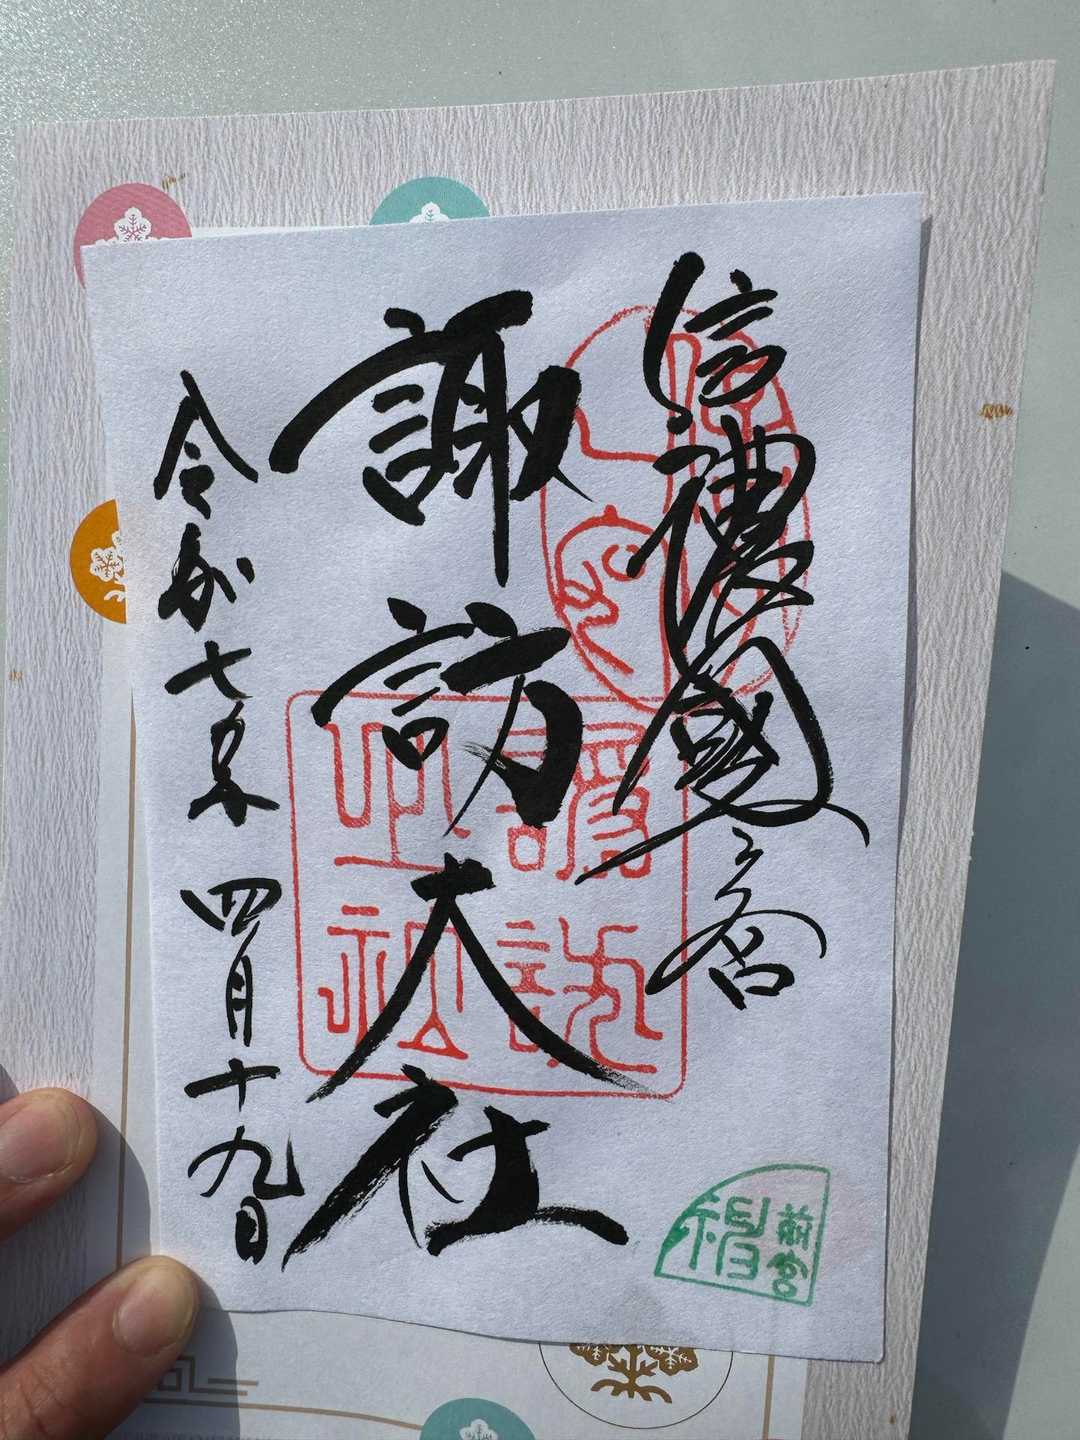 信濃國一之宮
諏訪大社
令和七年四月十九日
前宮